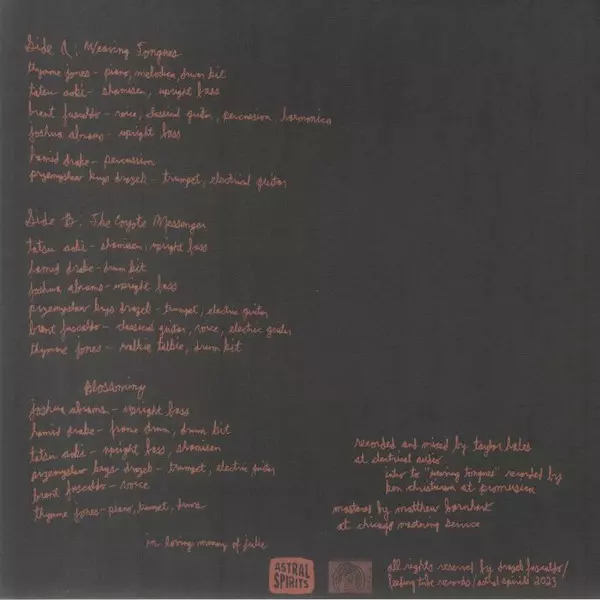 Side A: Weaving Tongues
thymme jones - piano, melodica, drum kit
tatsu aoki - shamisen, upright bass
brent fuscaldo - voice, classical guitar, percussion, harmonica
joshua abrams - upright bass
hamid drake - percussion
przemyslaw krys drazek - trumpet, electrical guitar
Side B: The Coyote Messenger
tatsu aoki - shamisen, upright bass
hamid drake - drum kit
joshua abrams - upright bass
przemyslaw krys drazek - trumpet, electric guitar
brent fuscaldo - classical guitar, voice, electric guitar
thymme jones - walkie talkie, drum kit
Blossoming
joshua abrams - upright bass
hamid drake - frame drum, drum kit
tatsu aoki - upright bass, shamisen
przemyslaw krys drazek - trumpet, electric guitar
brent fuscaldo - voice
thymme jones - piano, trumpet, drums
in loving memory of
recorded and mixed by taylor hales
at electrical audio
intro to "weaving tongues" recorded by
ken christianson at promusica
mastered by matthew barnhart
at chicago mastering service
ASTRAL
SPIRITS
all rights reserved by drazek fuscaldo/
feeding tube records/astral spirits 2023